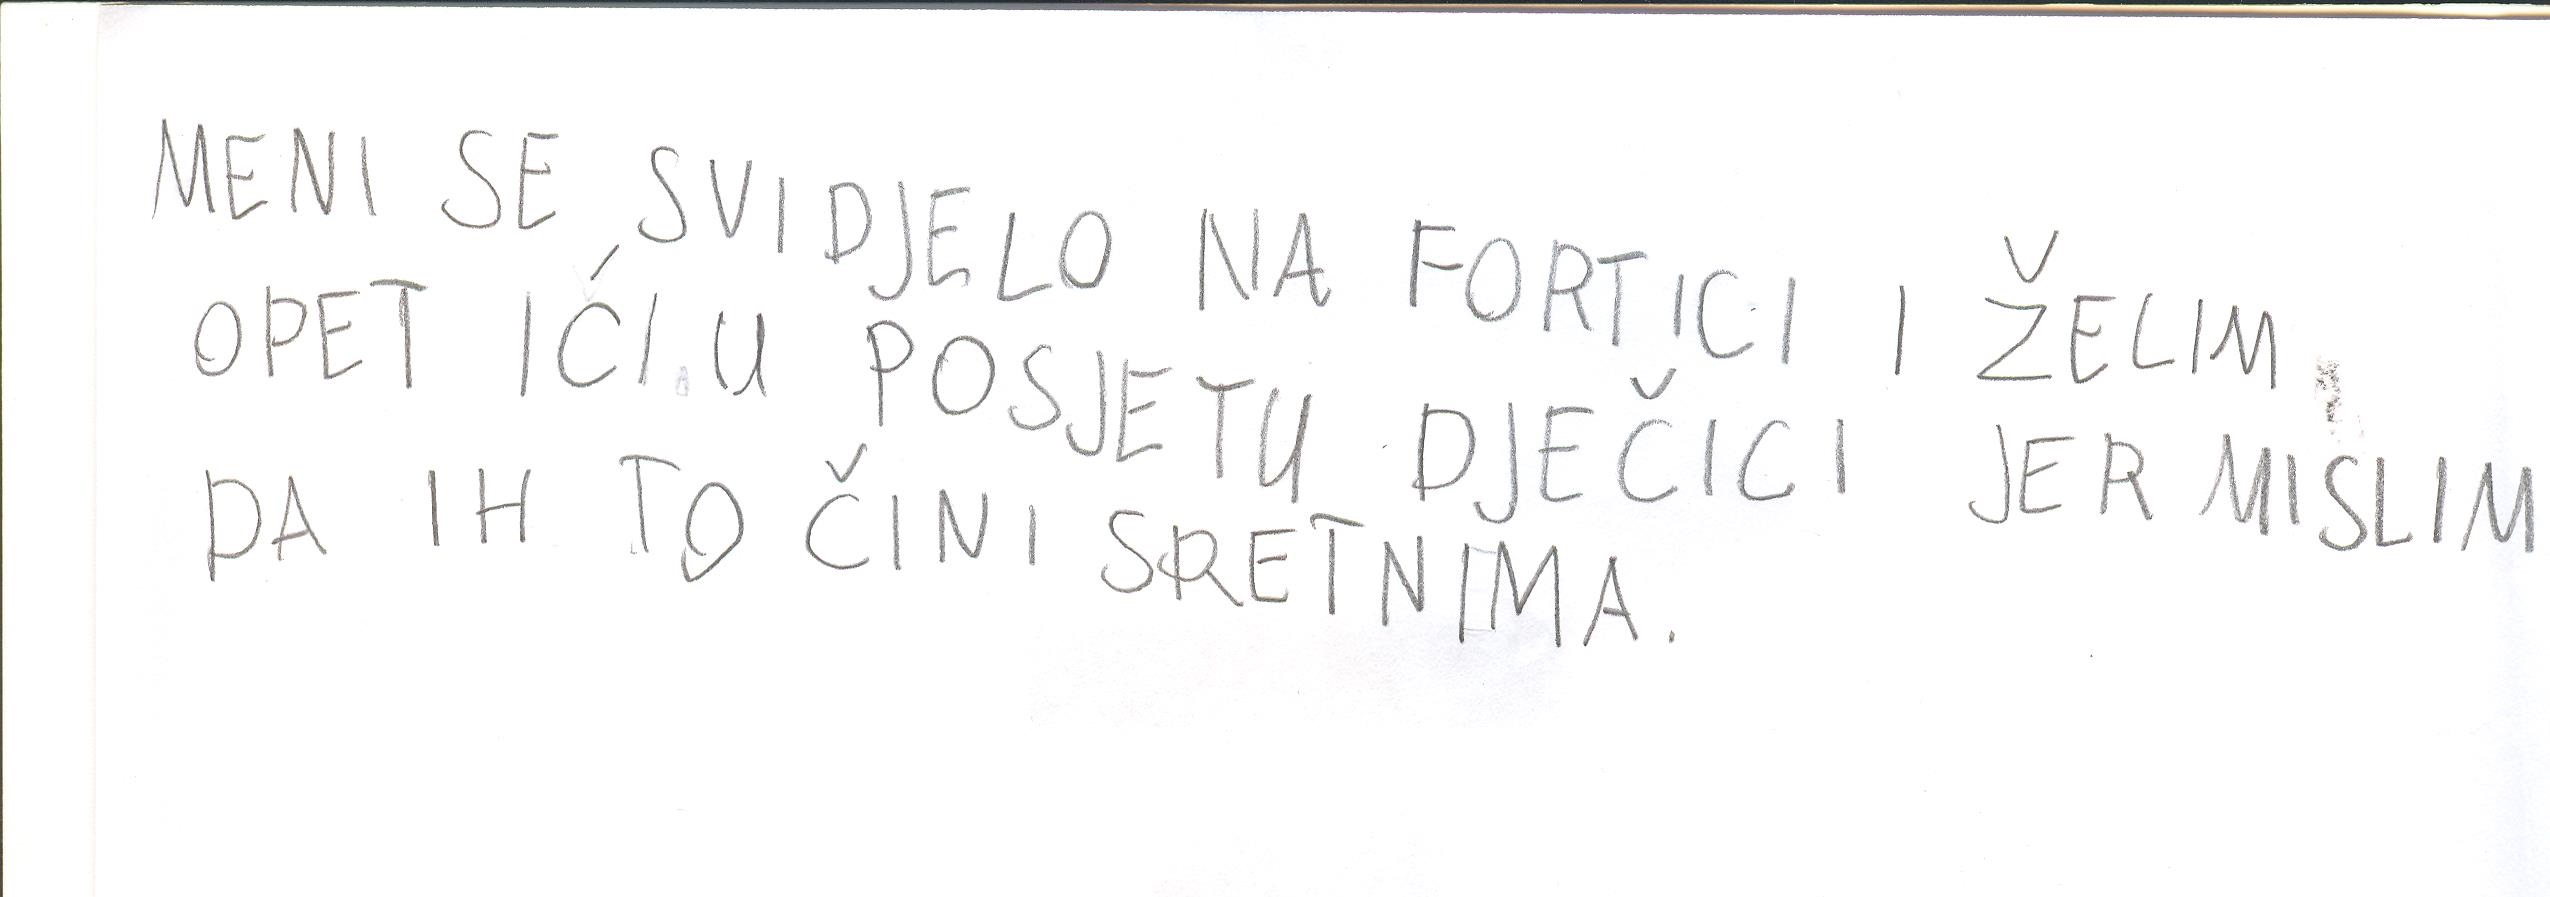 MENI SE SVIDJELO NA FORTICI I ŽELIM
OPET IĆI U POSJETU DJEČICI JER MISLIM
DA IH TO ČINI SRETNIMA.